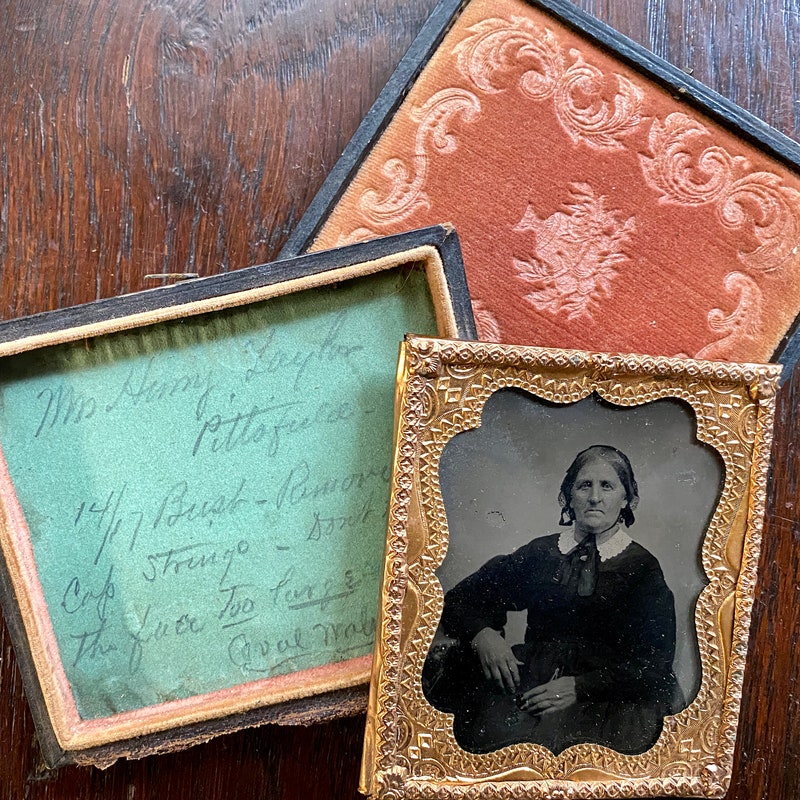 Mrs Henry Taylor
Pittsfield
14/17 Bust - Remove
Cap Strings - Don't
the face too large
Oval Wal